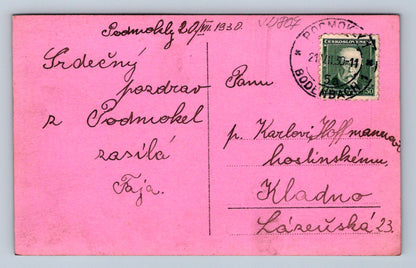 Podmokly 20/VII 1930.
Srdečný
pozdrav
z Podmokel
zasílá
Fája.
PODMOKLY
21.VII.30-11
5a
BODENBACH
ČESKOSLOVENSKO
50
Panu
p. Karlovi Hoffmannovi
hoslinskému
Kladno
Lázeňská 23.